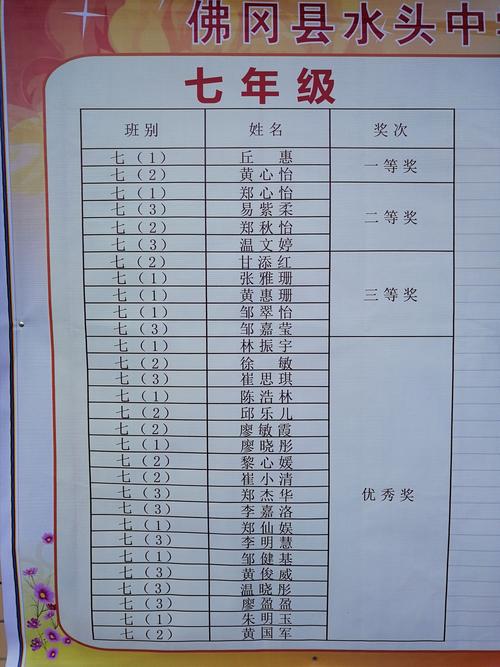 佛冈县水头中
七年级
班别 姓名 奖次
七（1） 丘惠 一等奖
七（2） 黄心怡
七（1） 郑心怡 二等奖
七（3） 易紫柔
七（2） 郑秋怡
七（3） 温文婷
七（2） 甘添红 三等奖
七（1） 张雅珊
七（1） 黄惠珊
七（1） 邹翠怡
七（3） 邹嘉莹
七（1） 林振宇 优秀奖
七（2） 徐敏
七（3） 崔思琪
七（1） 陈浩林
七（2） 邱乐儿
七（2） 廖敏霞
七（1） 廖晓彤
七（2） 黎心媛
七（2） 崔小清
七（3） 郑杰华
七（3） 李嘉洛
七（1） 郑仙娱
七（3） 李明慧
七（1） 邹健基
七（3） 黄俊威
七（3） 温晓彤
七（3） 廖盈盈
七（1） 朱明玉
七（2） 黄国军